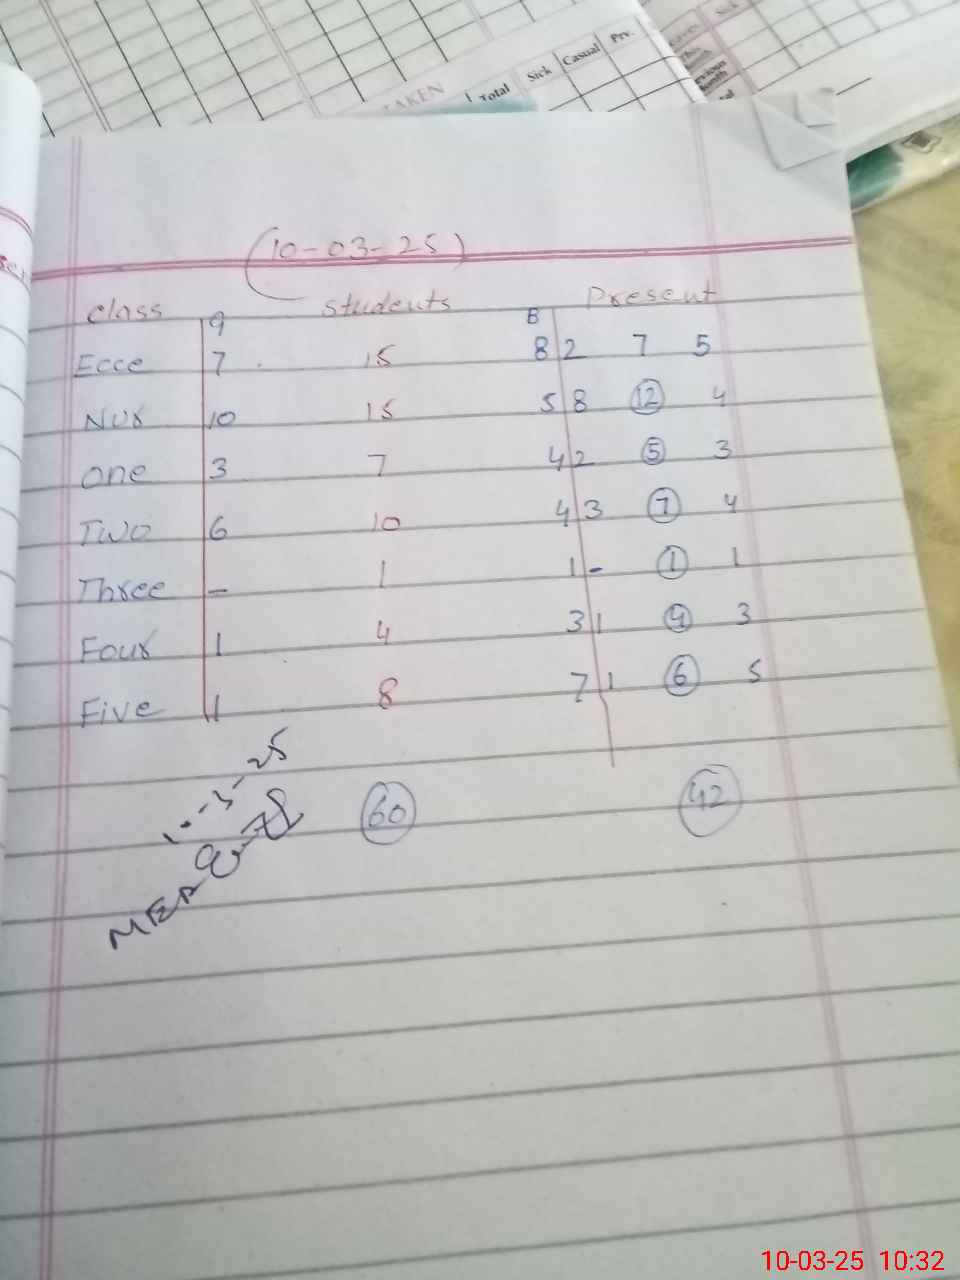 TAKEN
Total Sick Casual Prv.
Sick
(10-03-25)
Class g Students B Present
Ecce 7 15 8 2 7 5
Nur 10 15 5 8 12 4
One 3 7 4 2 5 3
Two 6 10 4 3 7 4
Three - 1 1 - 1 1
Four 1 4 3 1 4 3
Five 1 8 7 1 6 5
60 42
10-3-25
MEA
10-03-25 10:32